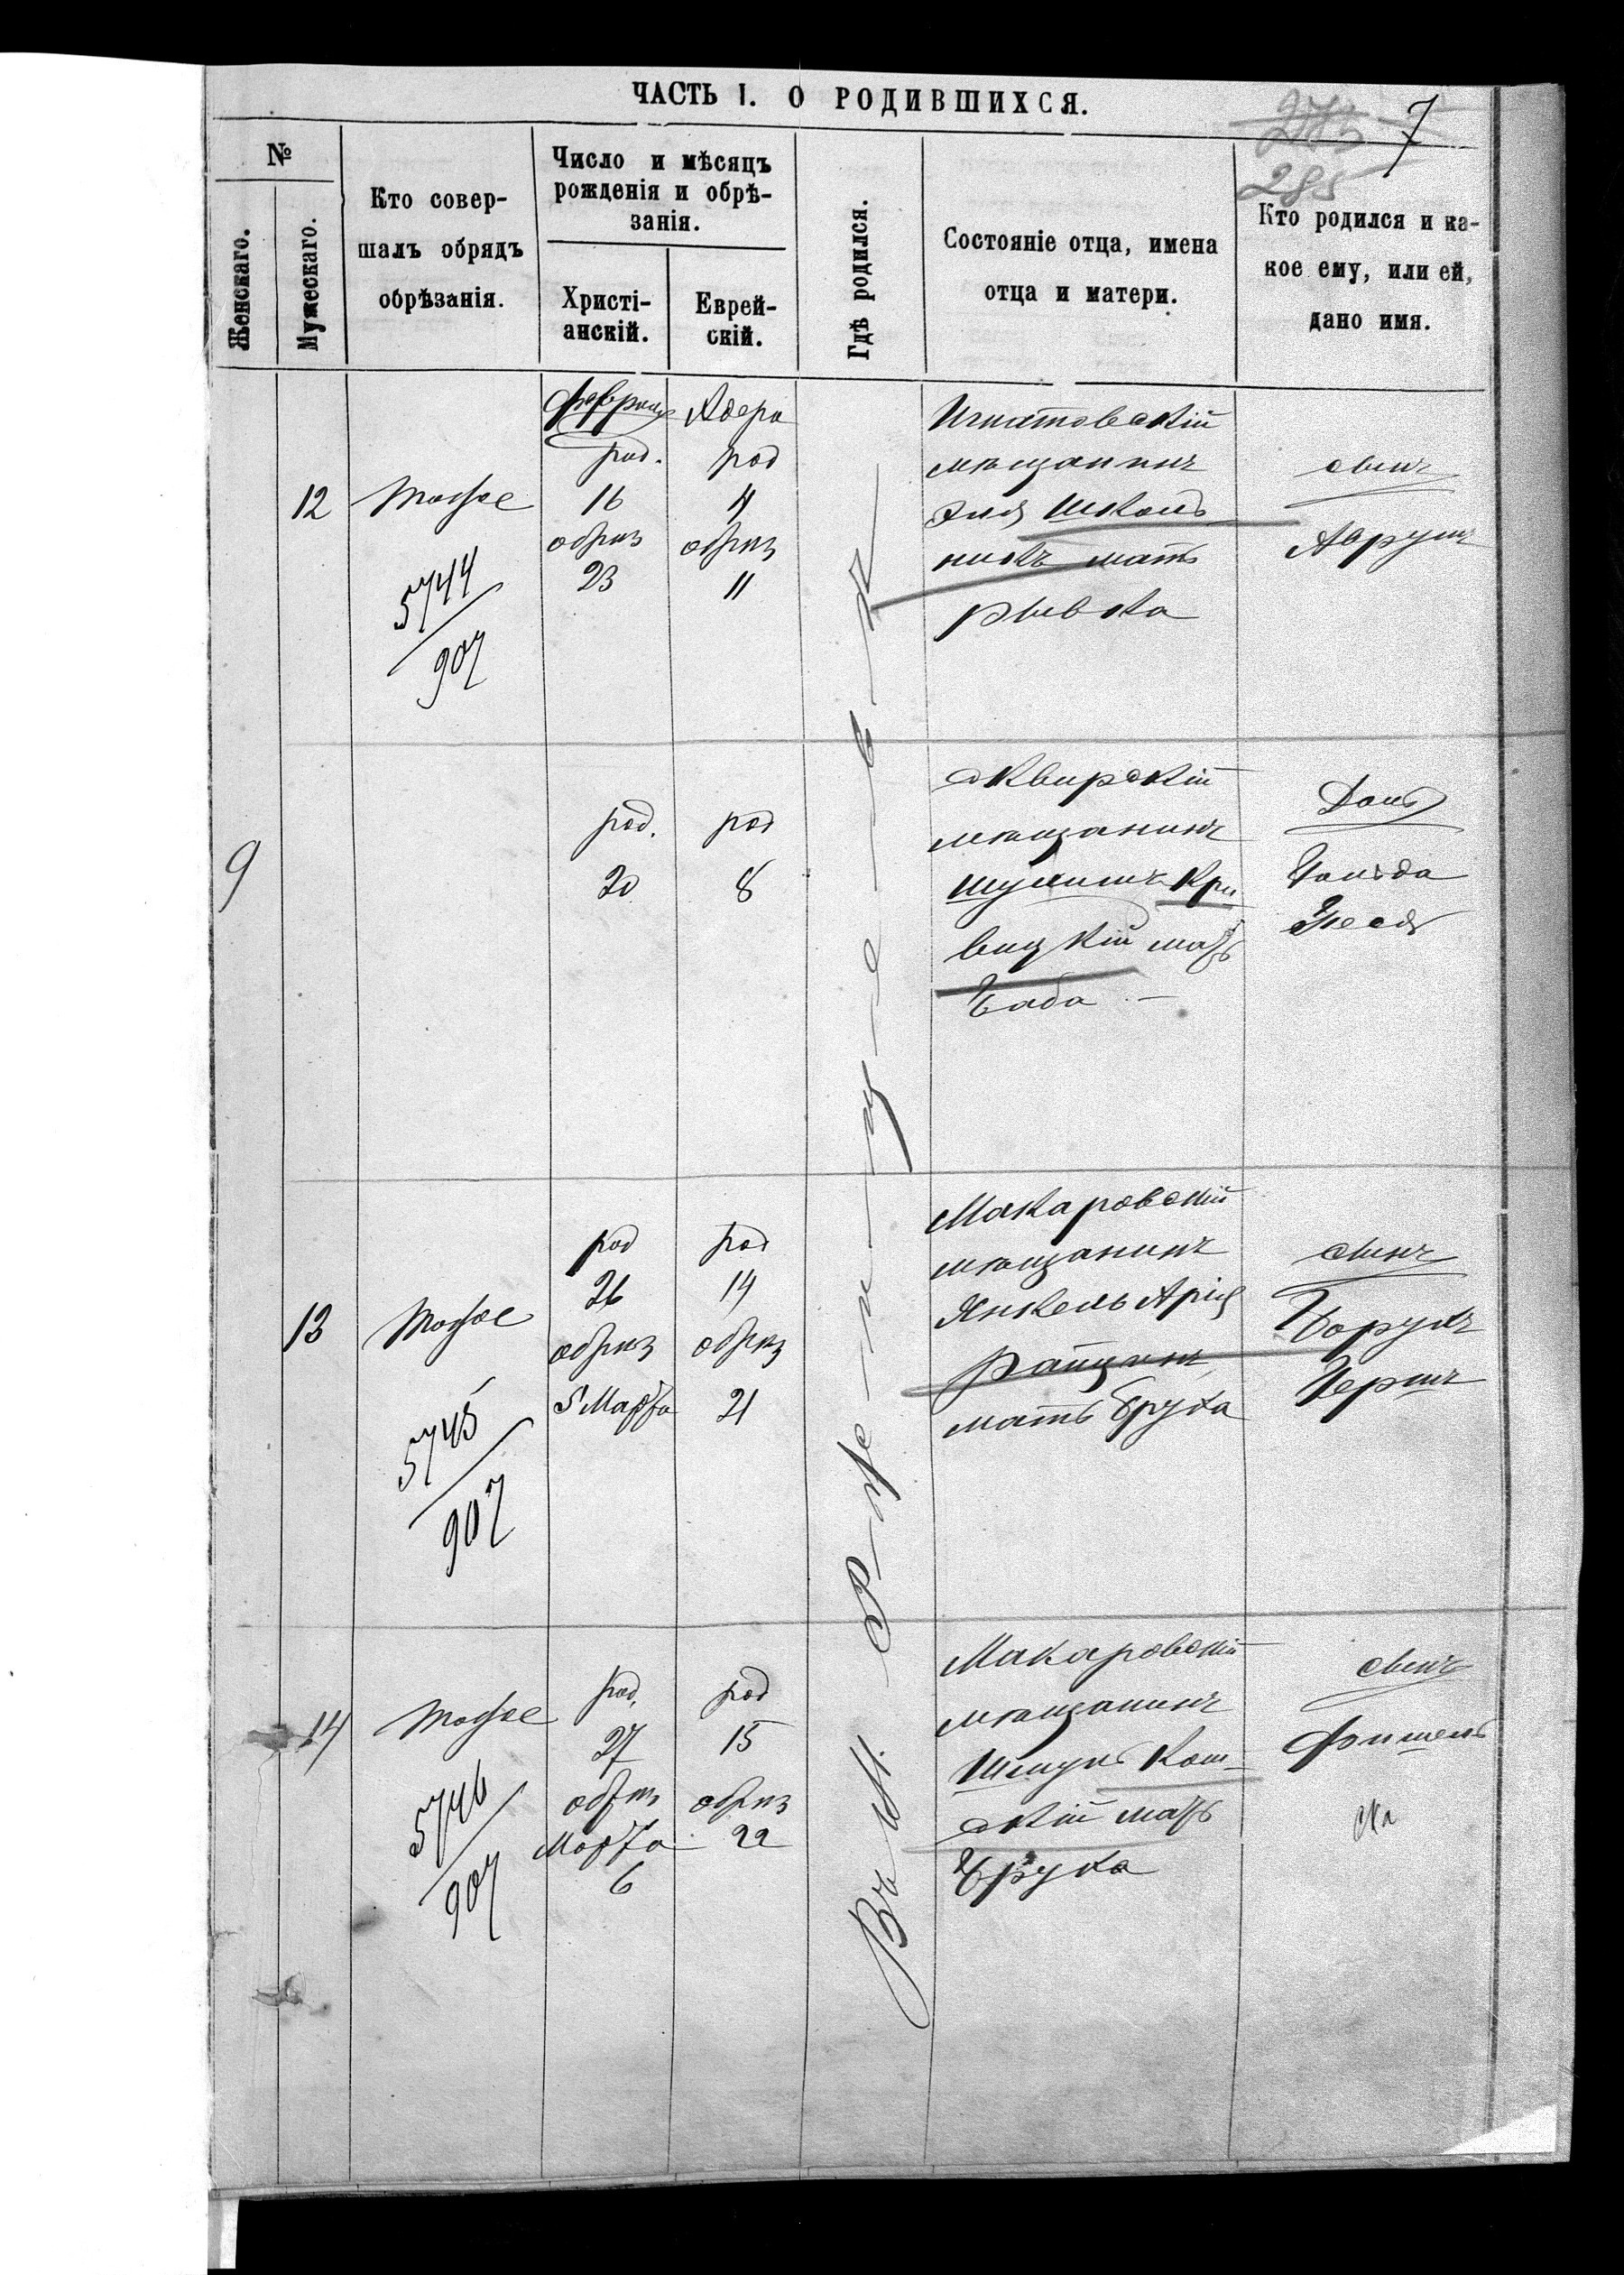 ЧАСТЬ I. О РОДИВШИХСЯ.
7
285
№
Женскаго.
Мужескаго.
Кто совер-
шалъ обрядъ
обрѣзанія.
Число и мѣсяцъ
рожденія и обрѣ-
занія.
Христі-
анскій.
Еврей-
скій.
Гдѣ родился.
Состояніе отца, имена
отца и матери.
Кто родился и ка-
кое ему, или ей,
дано имя.
12
Тотже
5744
907
Февраля
род.
16
обрѣз
23
Адера
род
4
обрѣз
11
Игнатовскій
мѣщанинъ
Эля Школь
никъ мать
Рывка
сынъ
Аврумъ
9
род.
20
род
8
Сквирскій
мѣщанинъ
Шулимъ Кри
вицкій мать
Баба
Дочь
Гольда
13
Тотже
5745
907
род
26
обрѣз
5 Марта
род
14
обрѣз
21
Макаровскій
мѣщанинъ
Янкель Арія
мать Бруха
сынъ
Борухъ
Гершъ
14
Тотже
5746
907
род.
27
обрѣз
Марта
6
род
15
обрѣз
22
Макаровскій
мѣщанинъ
Шмуль Кош-
скій мать
Бруха
сынъ
Фишель
Въ м.